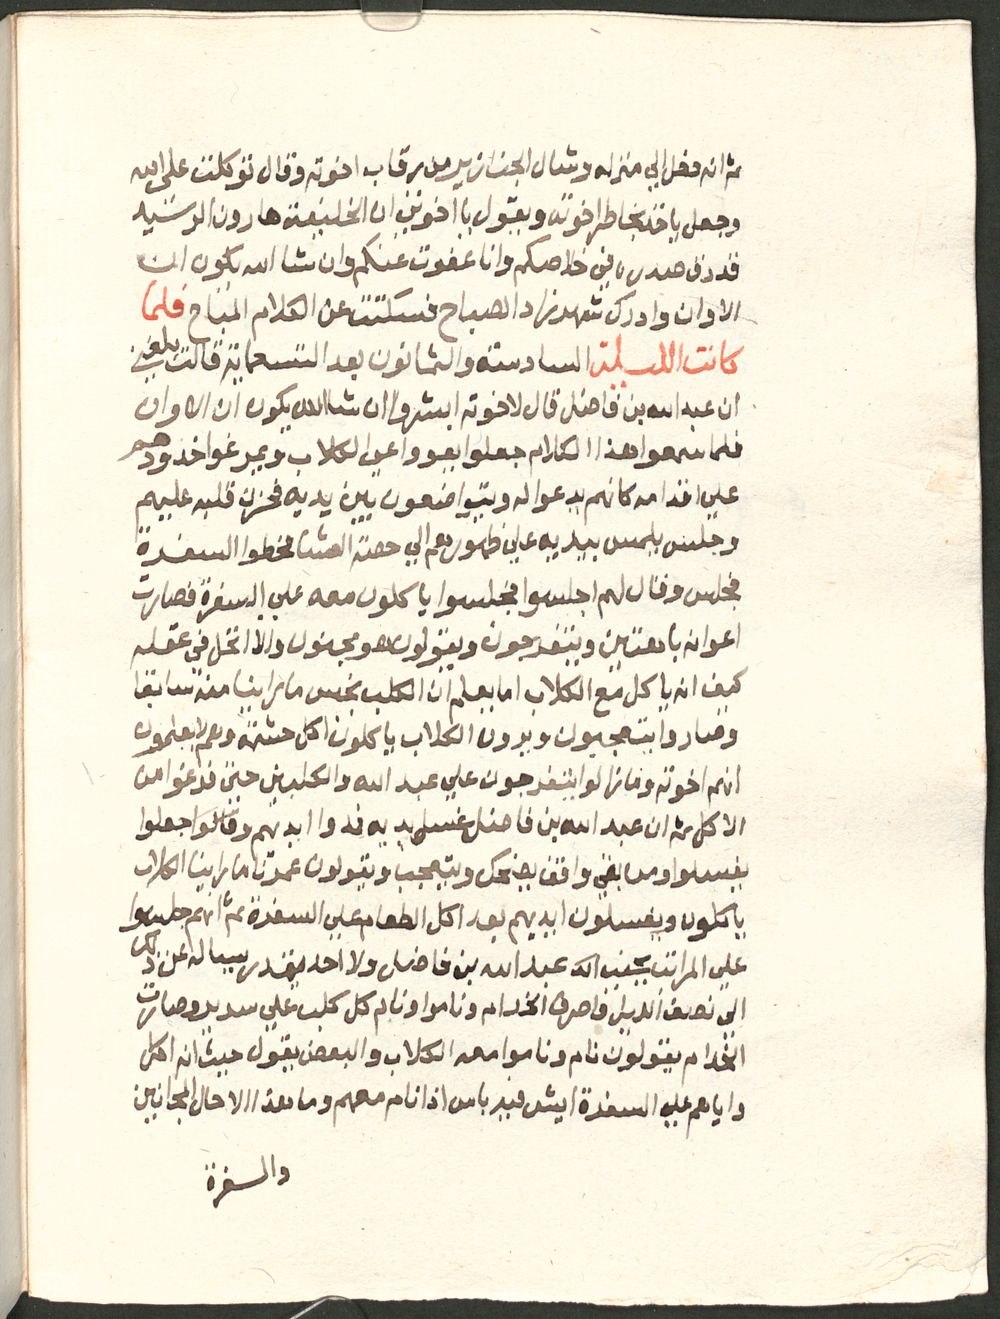 ثم انه دخل الي منزله وشال الجنازير من رقاب اخوته وقال توكلت علي الله
وجعل ياخذ بخاطر اخوته ويقول يا اخوتي ان الخليفة هارون الرشيد
قد دق صدره في خلاصكم وانا عفوت عنكم وان شا الله يكون ان
الاوان وادرك شهرزاد الصباح فسكتت عن الكلام المباح فلما
كانت الليلة السادسة والثمانون بعد التسعماية قالت بلغني
ان عبد الله بن فاضل قال لاخوته ابشروا ان شا الله يكون ان الاوان
فلما سمعوا هذا الكلام جعلوا يعووا عي الكلاب ويمرغوا خدودهم
علي اقدامه كانهم يدعوا له ويتواضعون بين يديه فحزن قلبه عليهم
وجلس يلمس بيديه علي ظهورهم الي حصة العشا فحطوا السفرة
فجلس وقال لهم اجلسوا فجلسوا ياكلون معه علي السفرة فصارت
اعوانه باهتين ويتفرجون ويقولون هو مجنون والا اختل في عقله
كيف انه ياكل مع الكلاب اما يعلم ان الكلب نجس ما راينا منه سابقا
وصاروا يتعجبون ويرون الكلاب ياكلون اكل حشمة وهم لا يعلمون
انهم اخوته وما زالوا يتفرجون علي عبد الله والكلبين حتي فرغوا من
الاكل ثم ان عبد الله بن فاضل غسل يديه فدوا ايديهم وقالوا جعلوا
يغسلوا ومن بقي واقف يضحك ويتعجب ويقولون عمرنا ما راينا الكلاب
ياكلون ويغسلون ايديهم بعد اكل الطعام علي السفرة ثم انهم جلسوا
علي المراتب بجنب اله عبد الله بن فاضل ولا احد يقدر يساله عن ذلك
الي نصف الليل فاصرف الخدام وناموا ونام كل كلب علي سرير وصارت
الخدام يقولون نام وناموا معه الكلاب والبعض يقول حيث انه اكل
واياهم علي السفرة ايش فيه باس اذا نام معهم وما هذا الا حال المجانين
والسفرة